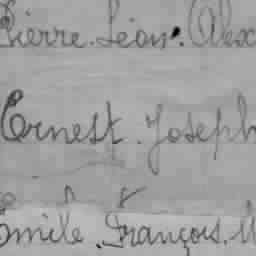 Pierre. Léon. Alex
Ernest. Joseph
Emile. François.